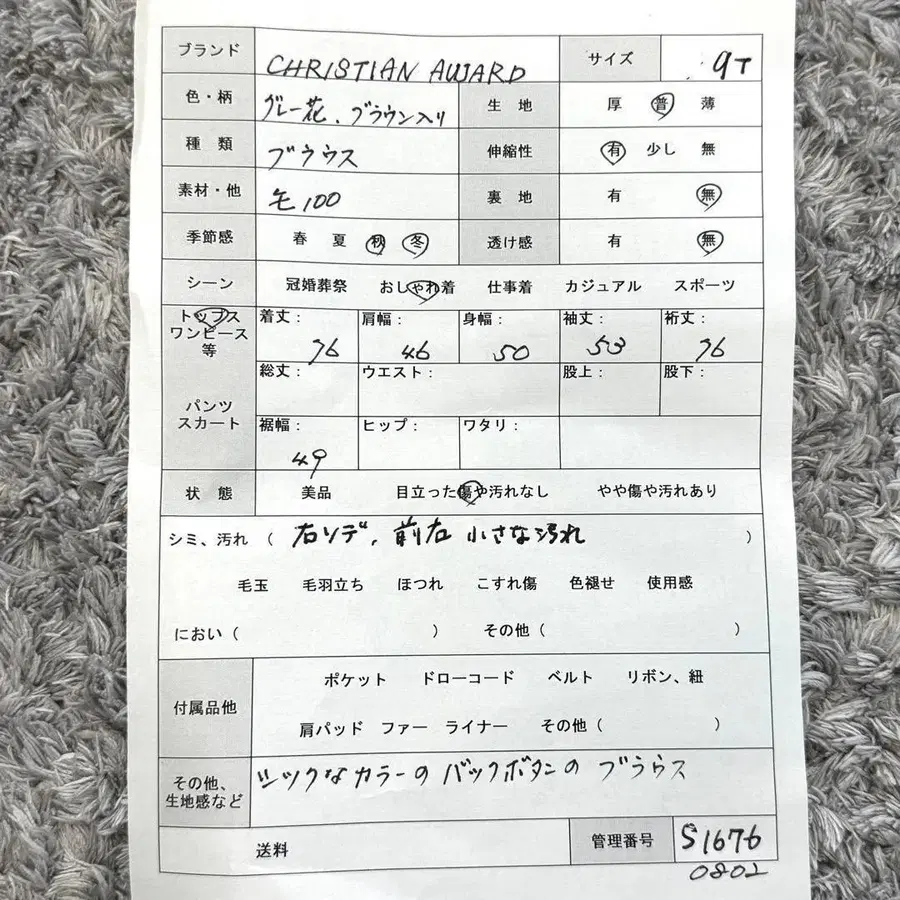 ブランド CHRISTIAN AUJARD サイズ 9T
色・柄 グレー花、ブラウン入り 生地 厚 普 薄
種類 ブラウス 伸縮性 有 少し 無
素材・他 毛100 裏地 有 無
季節感 春 夏 秋 冬 透け感 有 無
シーン 冠婚葬祭 おしゃれ着 仕事着 カジュアル スポーツ
トップス
ワンピース
等
着丈: 76 肩幅: 46 身幅: 50 袖丈: 53 裄丈: 76
パンツ
スカート
総丈: ウエスト: 股上: 股下:
裾幅: 49 ヒップ: ワタリ:
状態 美品 目立った傷や汚れなし やや傷や汚れあり
シミ、汚れ ( 右ソデ、前右 小さな汚れ )
毛玉 毛羽立ち ほつれ こすれ傷 色褪せ 使用感
におい ( ) その他 ( )
付属品他 ポケット ドローコード ベルト リボン、紐
肩パッド ファー ライナー その他 ( )
その他、
生地感など
シックなカラーのバックボタンの ブラウス
送料 管理番号 S1676
0802